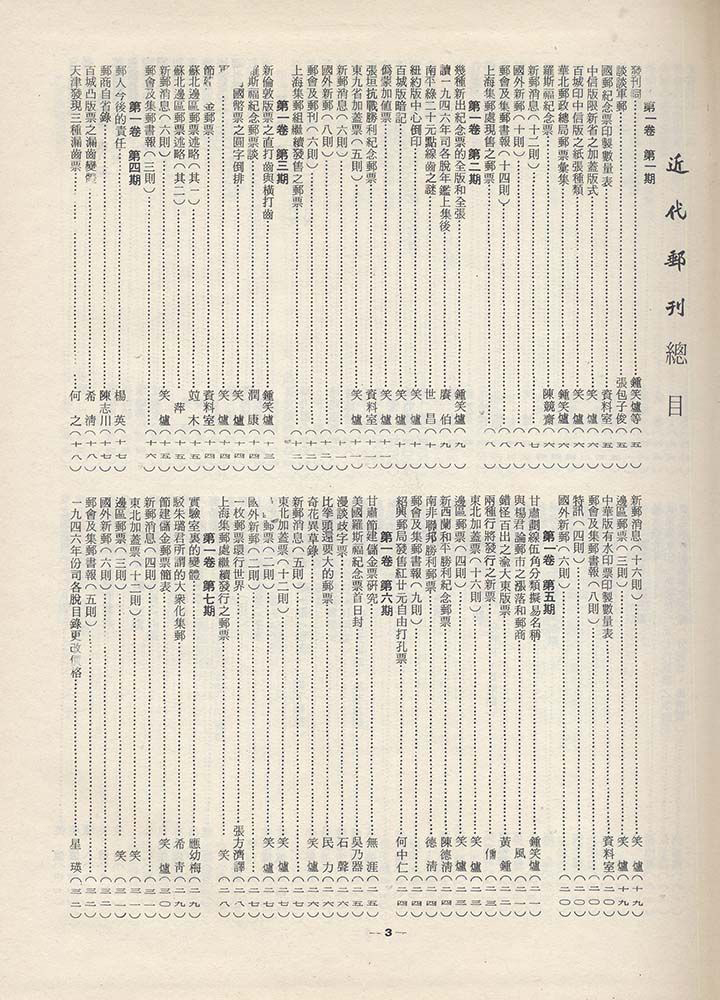 近代郵刊總目
第一卷 第一期
發刊詞……鍾笑爐等(五)
談談軍郵……張包子俊(五)
國郵紀念票印製數量表……資料室(五)
中信版限新省之加蓋版式……笑爐(六)
百城印中信版之紙張種類……笑爐(六)
華北郵政總局郵票彙集……鍾笑爐(六)
羅斯福紀念票……陳競齋(六)
新郵消息(十二則)……(七)
國外新郵(十則)……(八)
郵會及集郵書報(十四則)……(八)
上海集郵處現售之郵票……(八)
第一卷 第二期
幾種新出紀念票的全版和全張……鍾笑爐(九)
讀一九四六年司各脫年鑑上集後……賡伯(九)
南平綠二十元點線齒之謎……世昌(十)
紐約版中心倒印……笑爐(十)
百城版暗記……笑爐(十)
僞蒙加值票……笑爐(十)
張垣抗戰勝利紀念郵票……資料室(十一)
東九省加蓋票(五則)……笑爐(十一)
新郵消息(六則)……(十一)
國外新郵(八則)……(十二)
郵會及郵刊(六則)……(十二)
上海集郵組繼續發售之郵票……(十二)
第一卷 第三期
新倫敦版票之直打齒與橫打齒……鍾笑爐(十三)
羅斯福紀念郵票談……潤康(十四)
國幣票之圓字倒排……笑爐(十四)
……笑爐(十四)
節 金郵票……資料室(十四)
蘇北邊區郵票述略(其一)……竝木(十五)
蘇北邊區郵票述略(其二)……萍(十五)
新郵消息(六則)……笑爐(十五)
郵會及集郵書報(三則)……(十六)
第一卷 第四期
郵人今後的責任……楊英(十七)
郵商自省錄……陳志川(十七)
百城凸版票之漏齒變體……希淸(十八)
天津發現三種漏齒票……何之(十八)
新郵消息(十六則)……笑爐(十九)
邊區郵票(三則)……笑爐(十九)
中華版有水印票印製數量表……資料室(二〇)
郵會及集郵書報(八則)……(二〇)
特訊(四則)……(二〇)
國外新郵(六則)……(二〇)
第一卷 第五期
甘肅劃線伍角分類擬易名稱……鍾笑爐(二一)
與楊君論郵市之漲落和郵商……風(二一)
錯怪百出之渝大東版票……黃鍾(二二)
兩種行將發行之新票……儒(二三)
東北加蓋票(十六則)……笑爐(二三)
邊區郵票(四則)……笑爐(二三)
新西蘭和平勝利紀念郵票……陳德淸(二四)
南非聯邦勝利郵票……德淸(二四)
郵會及集郵書報(九則)……(二四)
紹興郵局發售紅廿元自由打孔票……何中仁(二四)
第一卷 第六期
甘肅節建儲金票研究……無涯(二五)
美國羅斯福紀念票首日封……吳乃器(二五)
漫談歧字票……石聲(二六)
比拳頭還要大的郵票……民力(二六)
奇花異草錄……笑爐(二六)
新郵消息(五則)……(二七)
東北加蓋票(十二則)……笑爐(二七)
邊區郵票(二則)……笑爐(二七)
國外新郵(二則)……(二七)
一枚郵票環行世界……張方濟譯(二八)
上海集郵處繼續發行之郵票……笑(二八)
第一卷 第七期
實驗室裏的變體……應幼梅(二九)
駁朱璐君所謂的大衆化集郵……希靑(二九)
節建儲金郵票簡表……笑爐(三〇)
新郵消息(四則)……(三一)
東北加蓋票(十二則)……笑(三一)
邊區郵票(三則)……笑(三一)
國外新郵(六則)……(三二)
郵會及集郵書報(五則)……(三二)
一九四六年份司各脫目錄更改價格……星瑛(三二)
—3—